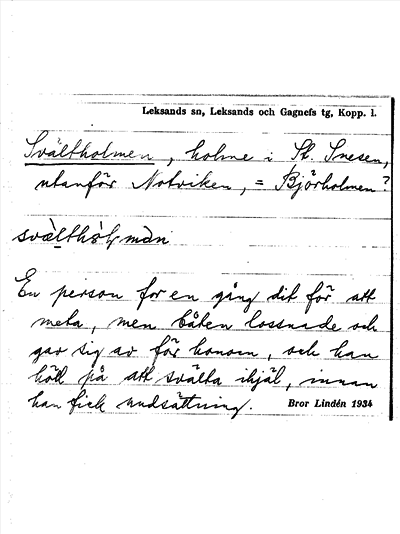 Leksands sn, Leksands och Gagnefs tg, Kopp. l.
Svältholmen, holme i St. Snesen,
utanför Notviken, = Björholmen?
En person for en gång dit för att
meta, men båten lossnade och
gav sig av för honom, och han
höll på att svälta ihjäl, innan
han fick undsättning.
Bror Lindén 1934